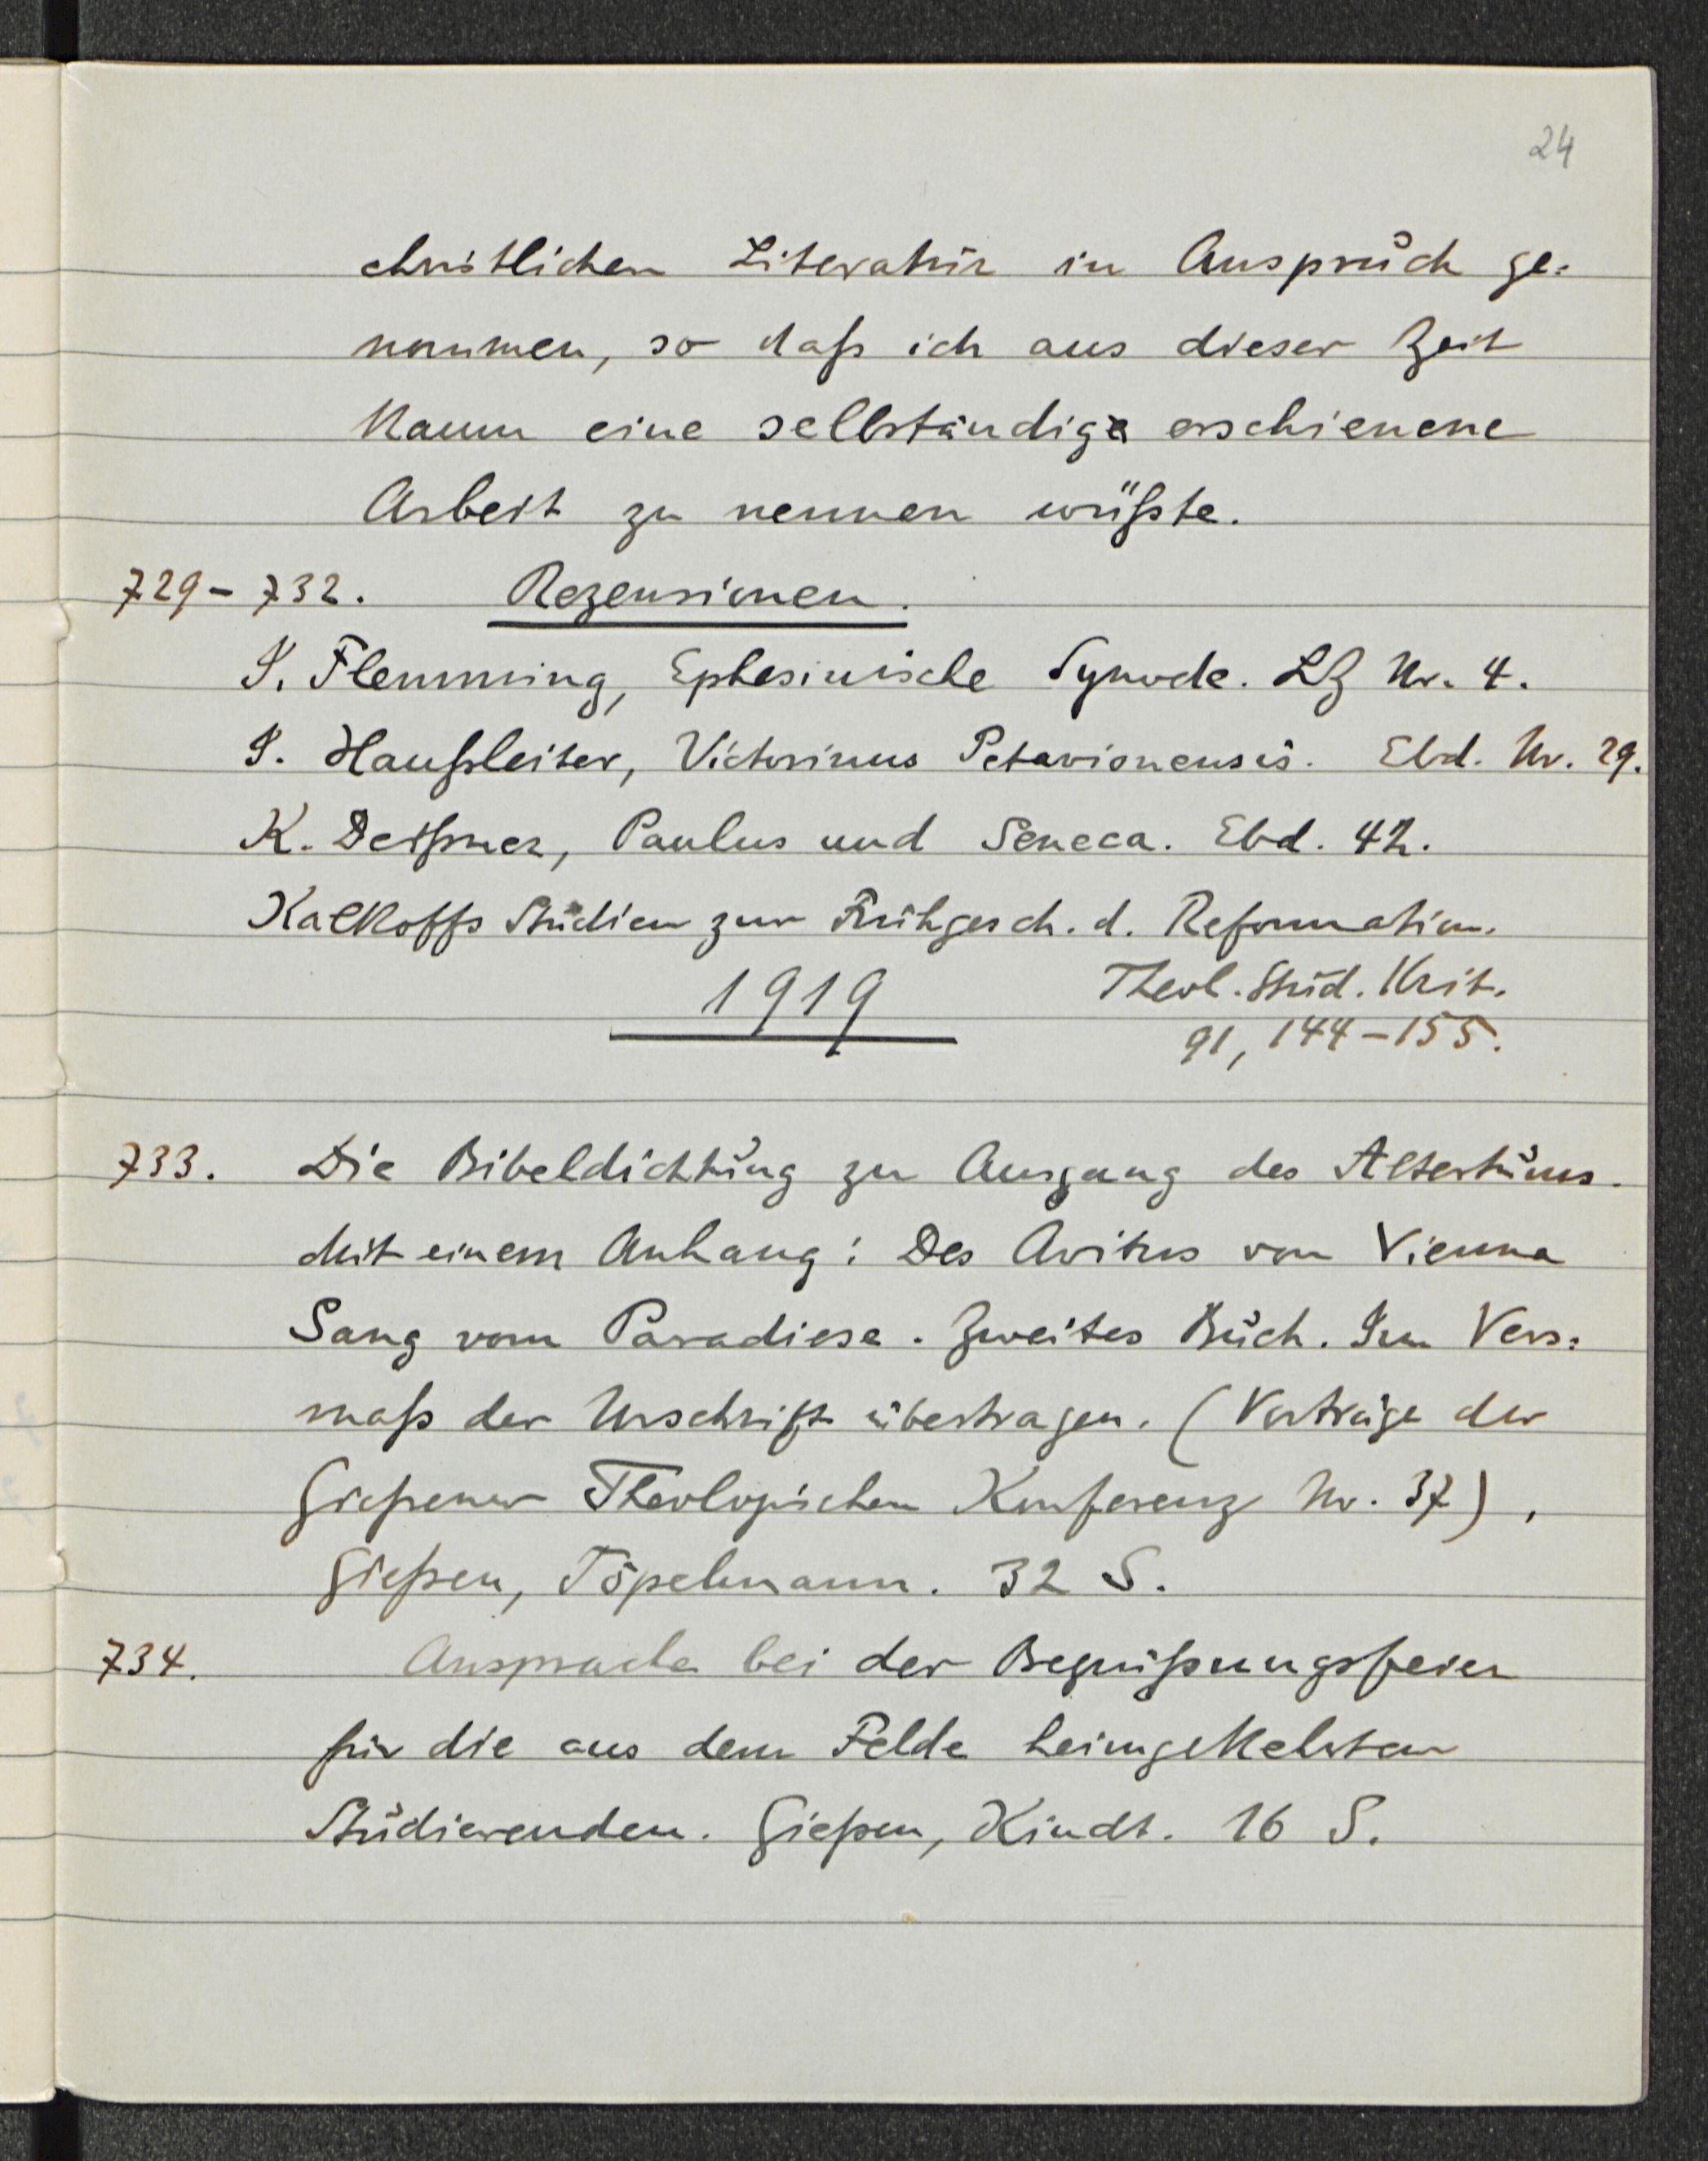 24
christlichen Literatur in Anspruch ge=
nommen, so daß ich aus dieser Zeit
kaum eine selbständig erschienene
Arbeit zu nennen wüßte.
729-732. Rezensionen.
J. Flemming, Ephesinische Synode. LZ Nr. 4.
J. Haußleiter, Victorinus Petavionensis. Ebd. Nr. 29.
K. Deißner, Paulus und Seneca. Ebd. 42.
Kalkoffs Studien zur Frühgesch. d. Reformation.
Theol. Stud. Krit.
1919
91, 144-155.
733. Die Bibeldichtung zu Ausgang des Altertums.
Mit einem Anhang: Des Avitus von Vienna
Sang vom Paradiese. Zweites Buch. Im Vers=
maß der Urschrift übertragen. (Vorträge der
Gießener Theologischen Konferenz Nr. 37),
Gießen, Töpelmann. 32 S.
734. Ansprache bei der Begrüßungsfeier
für die aus dem Felde heimgekehrten
Studierenden. Gießen, Kindt. 16 S.